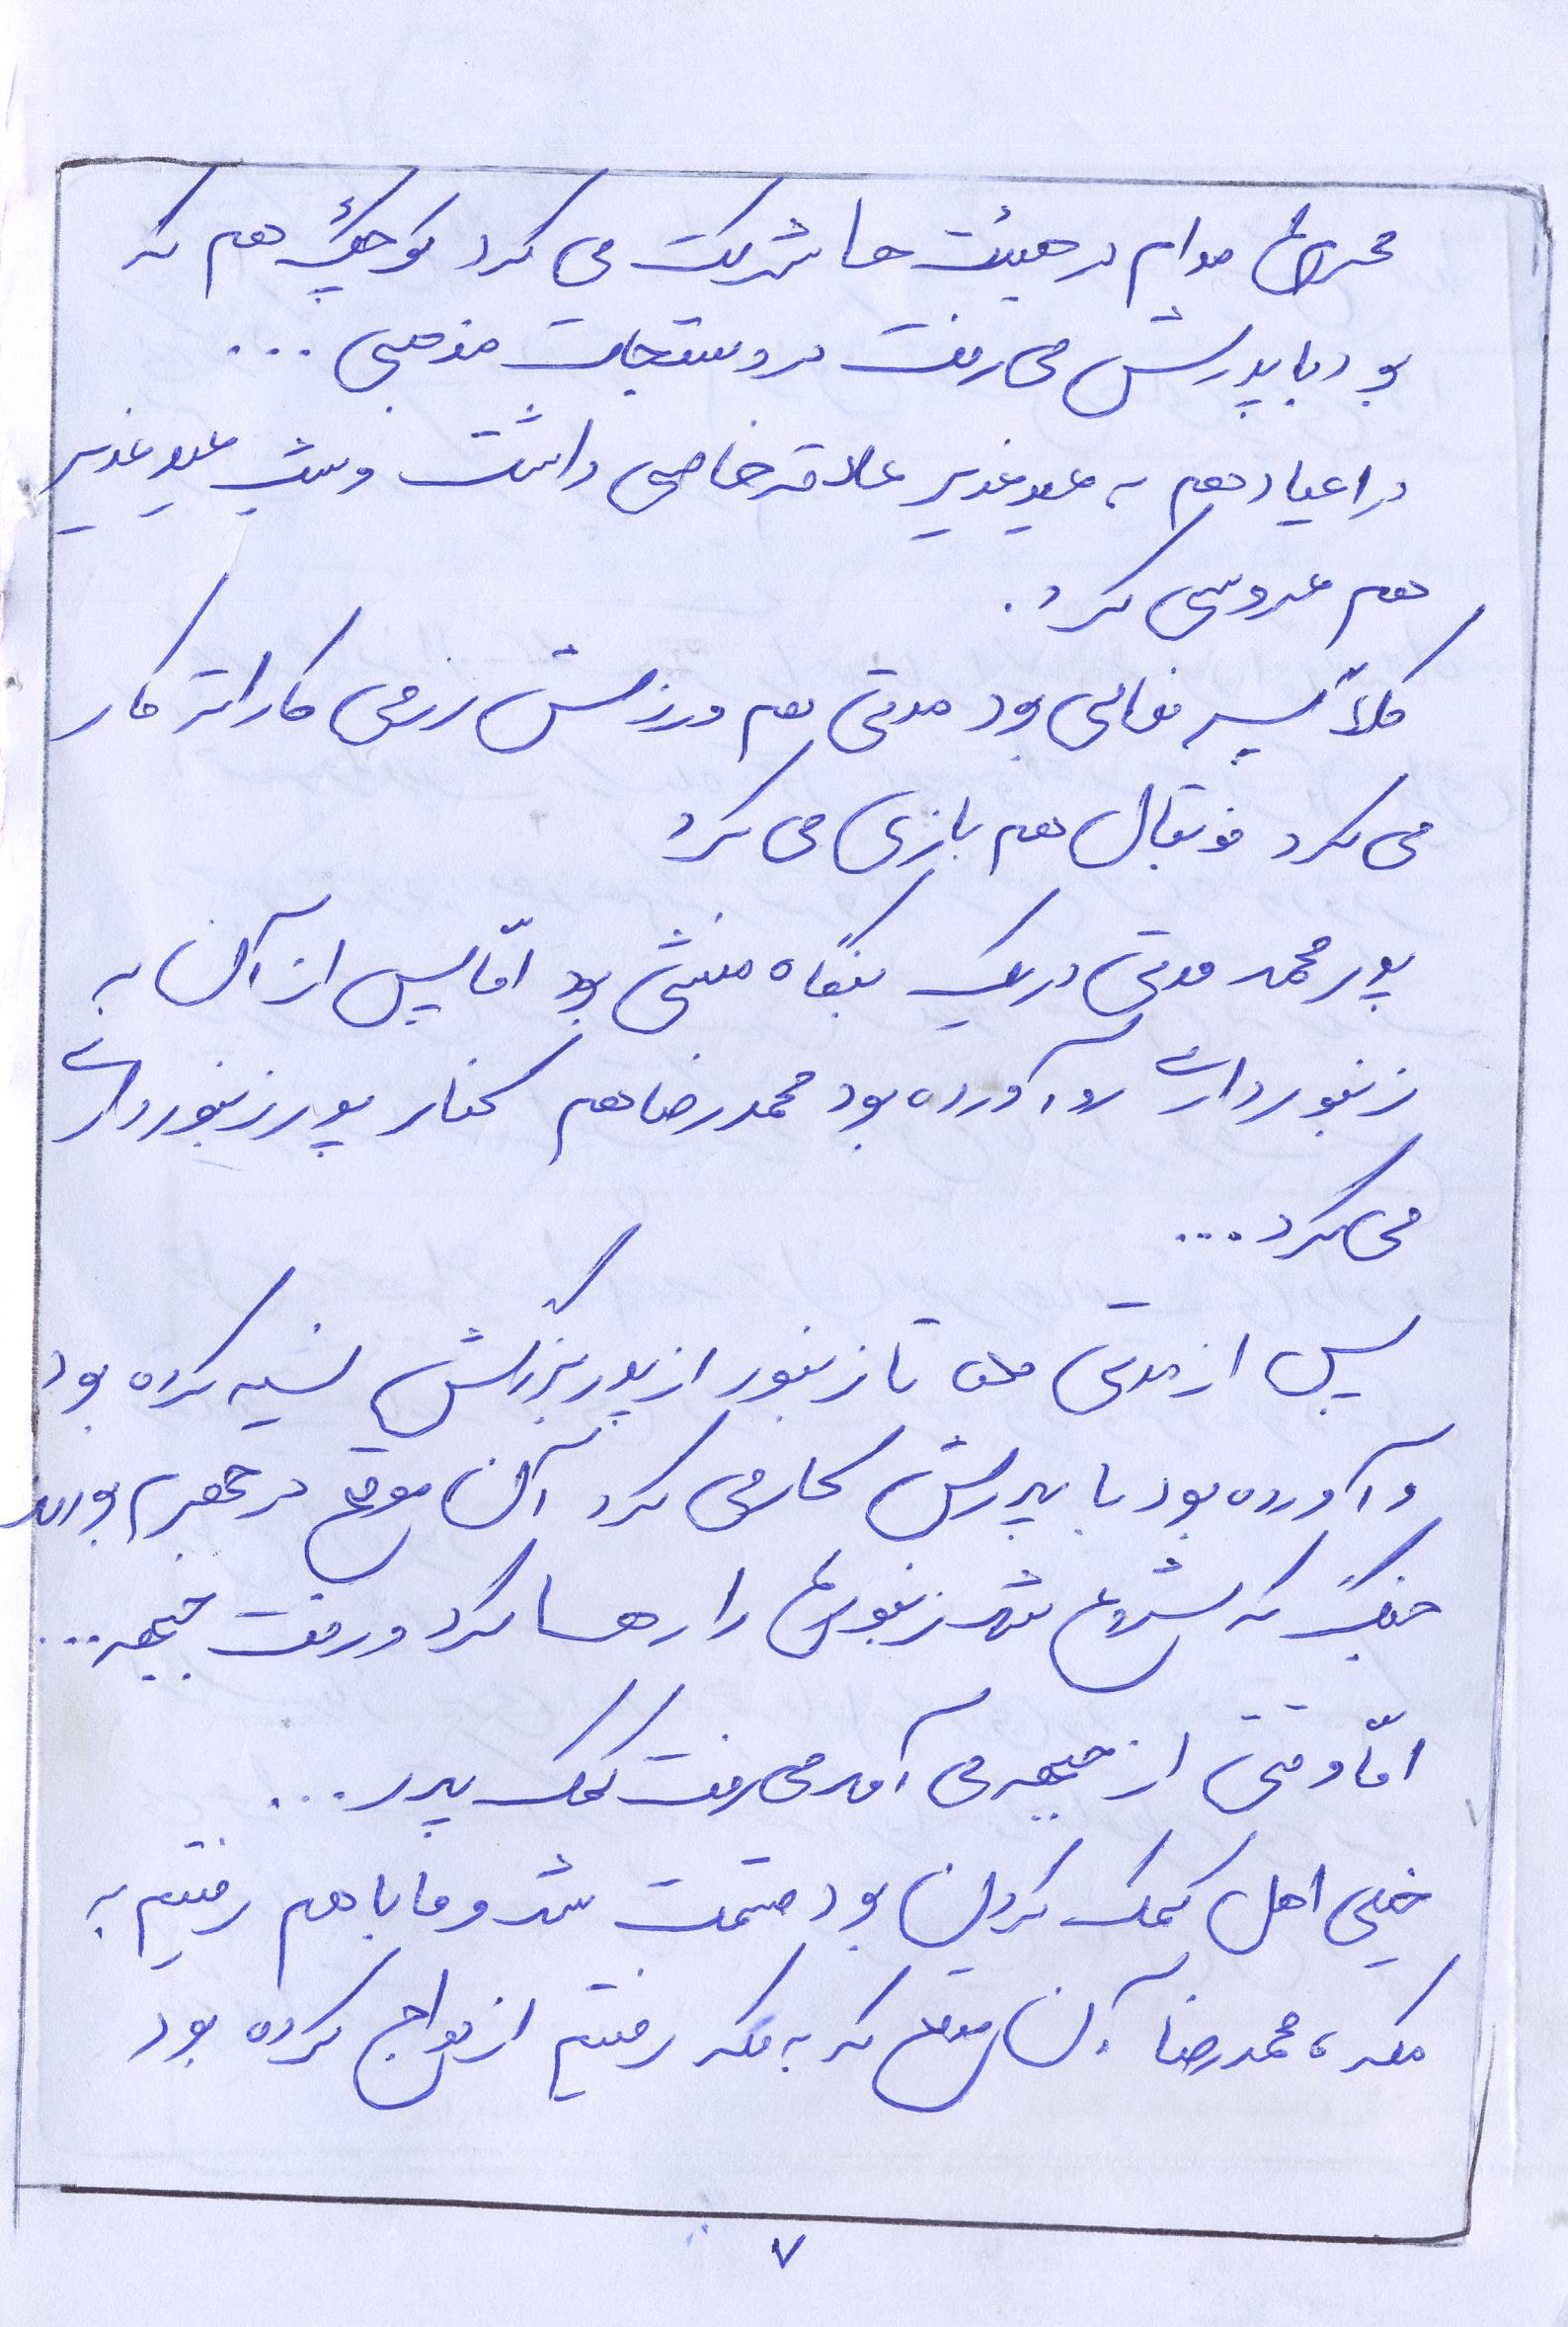 محرم‌ها مدام در هیئت ها شرکت می کرد کوچک هم که
بود با پدرش می رفت در دستجات مذهبی ...
در اعیاد هم به عید غدیر علاقه خاصی داشت و شب عید غدیر
هم عروسی کرد.
کلاً پسر فعالی بود مدتی هم ورزش رزمی کاراته کار
می کرد فوتبال هم بازی می کرد
پدر محمد مدتی در یک بنگاه منشی بود امّا پس از آن به
زنبورداری رو آورده بود محمدرضا هم کنار پدر زنبورداری
می کرد ...
پس از مدتی تا زنبور از پدربزرگش نسیه کرده بود
و آورده بود با پدرش کار می کرد آن موقع در جهرم بودند
جنگ که شروع شد زنبورها را رها کرد و رفت جبهه ...
امّا وقتی از جبهه می آمد می رفت کمک پدر ...
خیلی اهل کمک کردن بود قسمت شد و ما با هم رفتیم به
مکه، محمدرضا آن موقع که به مکه رفتیم ازدواج کرده بود
۷